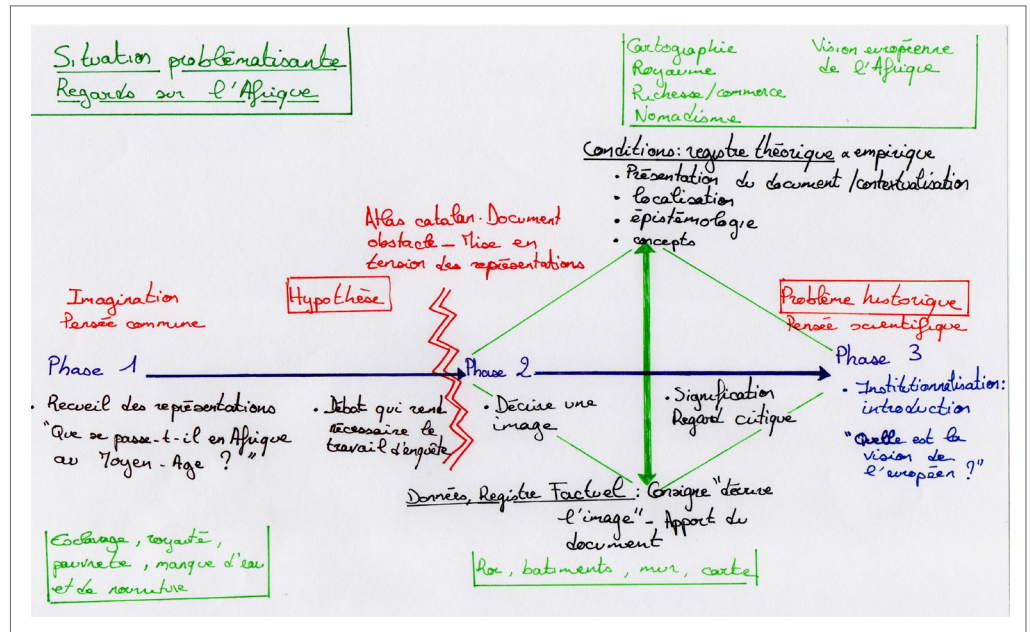 Situation problématisante
Regards sur l'Afrique
Cartographie
Royaume
Richesse/commerce
Nomadisme
Vision européenne
de l'Afrique
Conditions: registre théorique empirique
• Présentation du document /contextualisation
• localisation
• épistémologie
• concepts
Atlas catalan. Document
obstacle – Mise en
tension des représentations
Imagination
Pensée commune
Hypothèse
Problème historique
Pensée scientifique
Phase 1
Phase 2
Phase 3
• Recueil des représentations
"Que se passe-t-il en Afrique
au Moyen-Age ?"
• Débat qui rend
nécessaire le
travail d'enquête
• Décrire une
image
• Signification
Regard critique
• Institutionnalisation:
introduction
"Quelle est la
vision de
l'européen ?"
Données, Registre Factuel : Consigne "décrire
l'image" – Apport du
document
Esclavage, royauté,
pauvreté, manque d'eau
et de nourriture
Roi, batiments, mur, carte